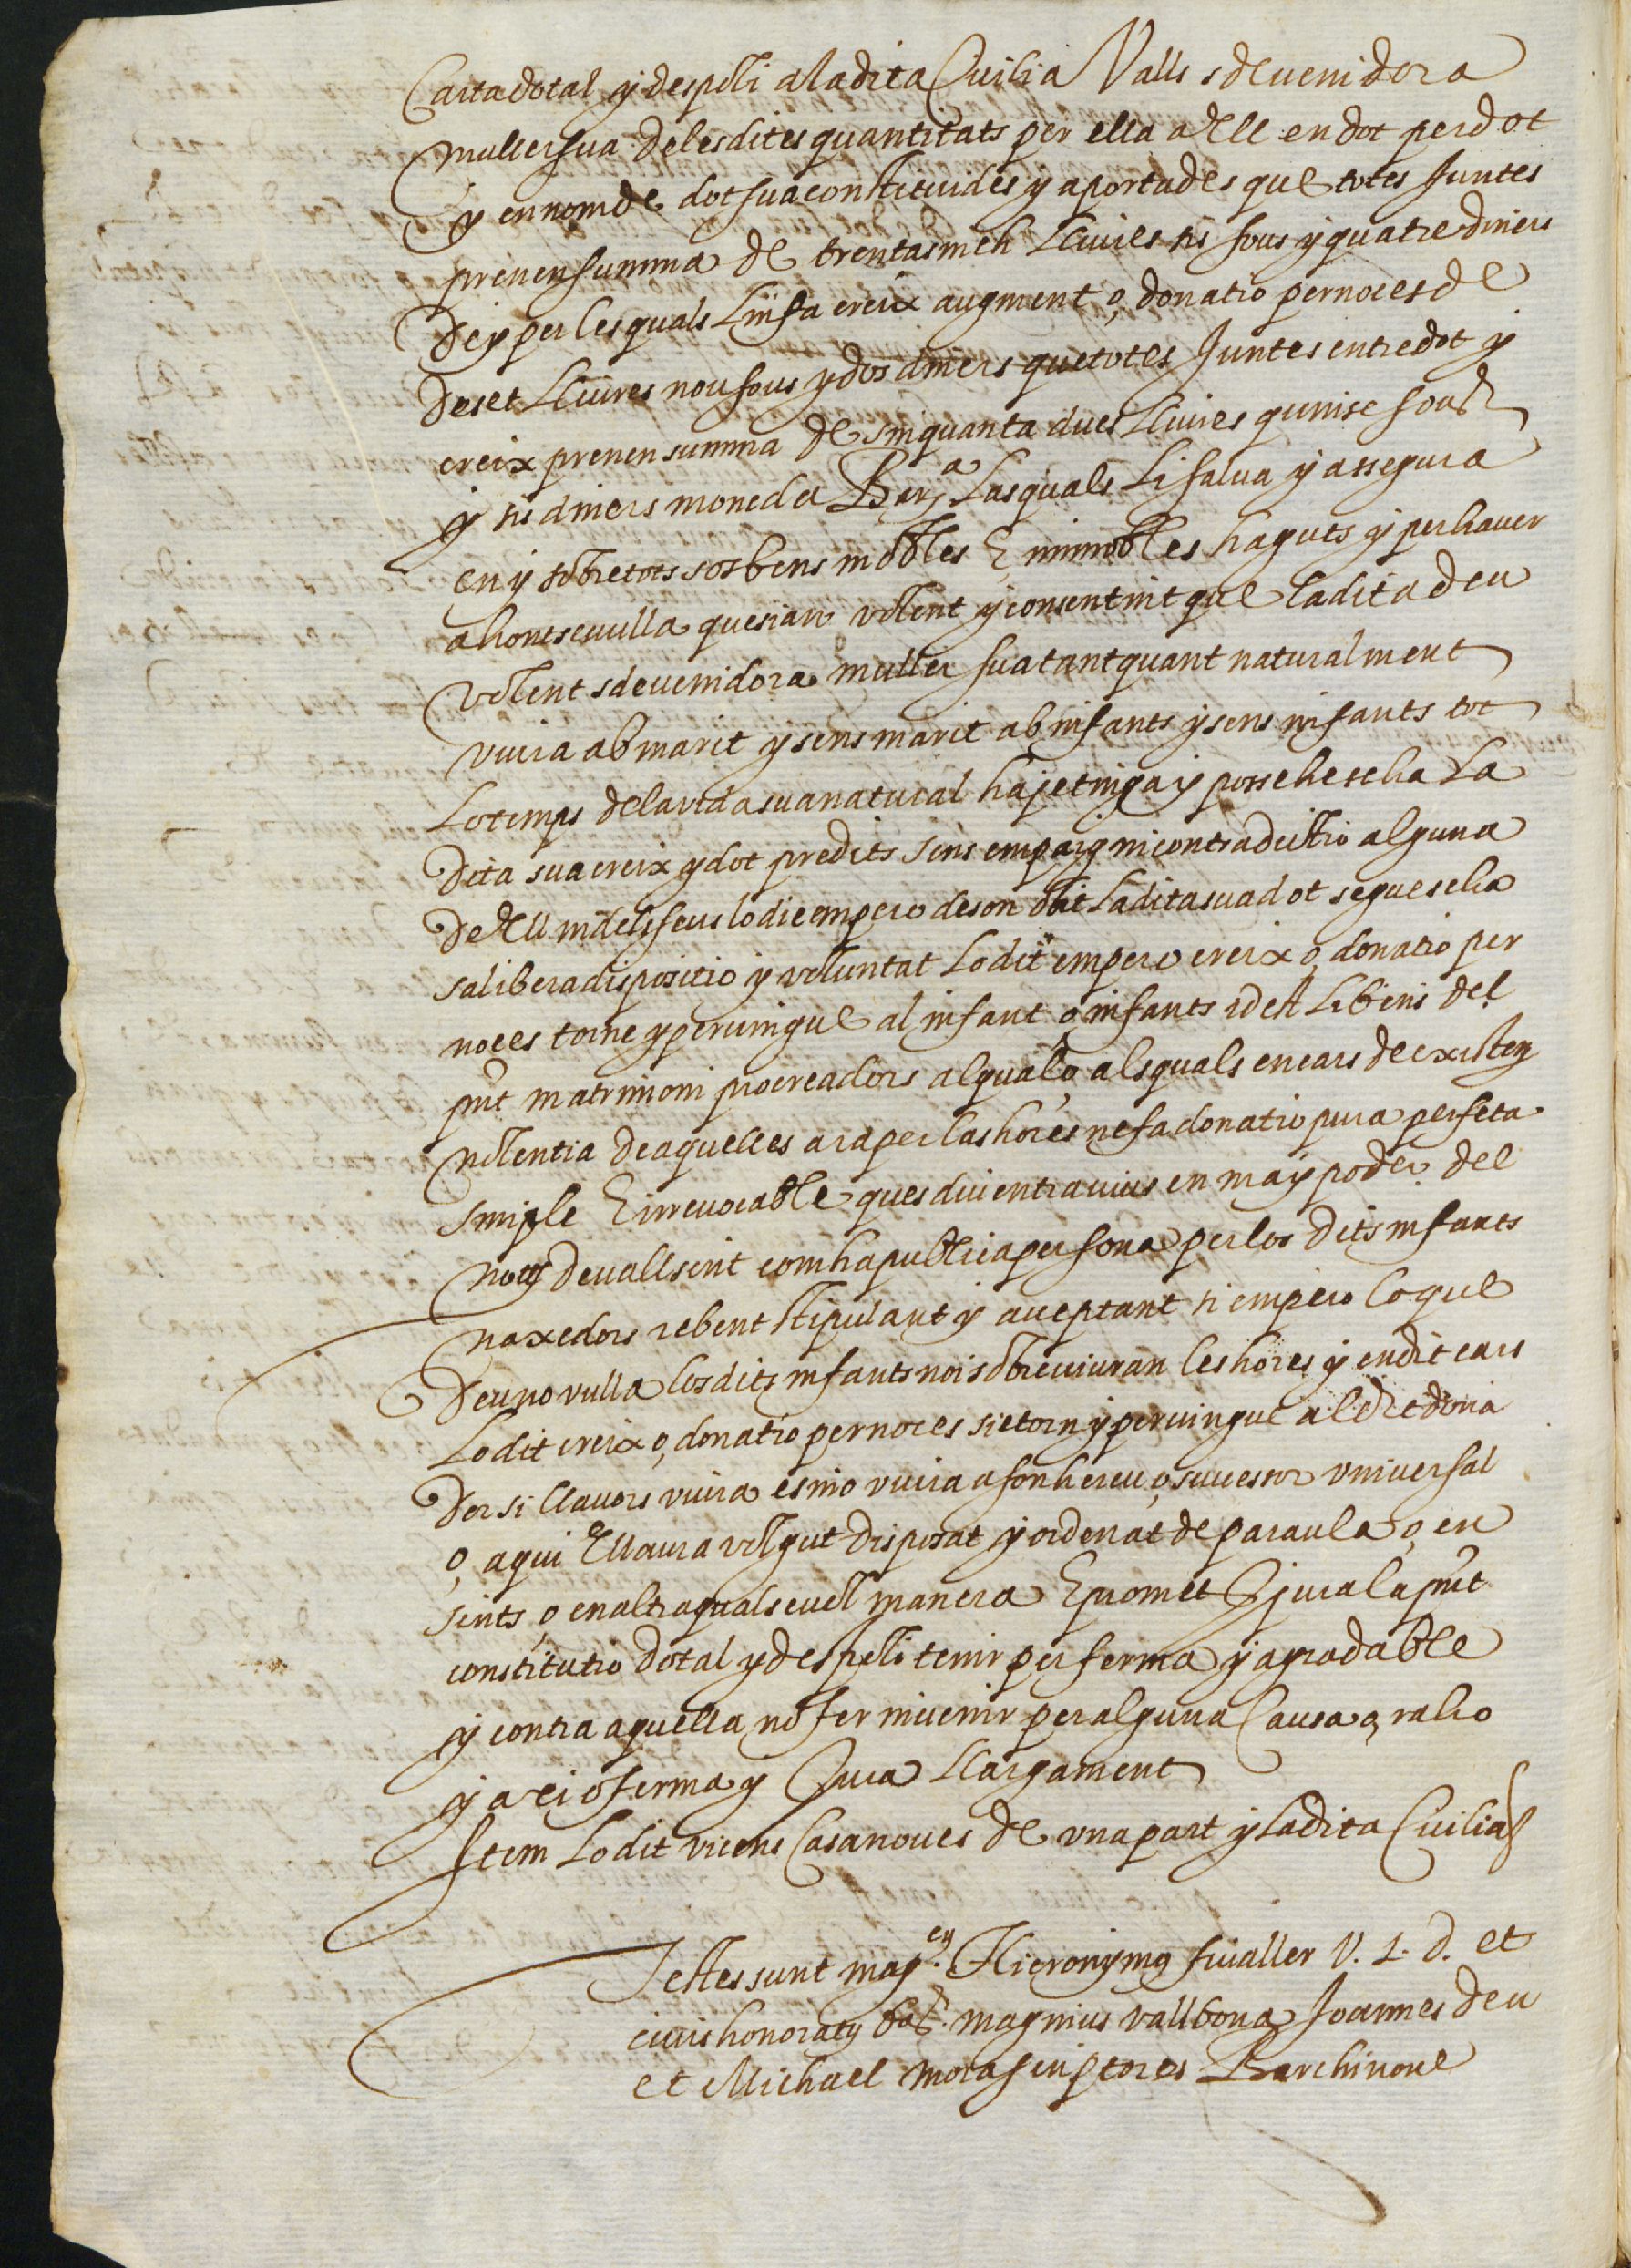 Carta dotal y despoli a la dita Cicilia Valls sdevenidora
muller sua de les dites quantitats per ella a ell en dot per dot
y en nom de dot sua constituides y aportades que totes juntes
prenen summa de trenta sinch lliures sis sous y quatre diners
de y per les quals lin fa creix augment o donatio per noces de
deset lliures nou sous y dos diners que totes juntes entre dot y
creix prenen summa de sinquanta dues lliures quinse sous
y sis diners moneda Barª las quals li salva y assegura
en y sobre tots sos bens mobles E immobles haguts y per haver
ahont se vulla que sian volent y consentint que la dita deu
volent sdevenidora muller sua tant quant naturalment
viura ab marit y sens marit ab infants y sens infants tot
lo temps de la vida sua natural haje tinga y possehescha la
dita sua creix y dot predits sens empaig ni contradictio alguna
de ell ni dels seus lo die empero de son obit la dita sua dot seguescha
sa libera dispositio y voluntat lo dit empero creix o donatio per
noces torne y pervingue al infant o infants idest libens del
pnt matrimoni procreadors al qual o als quals en cars de existen
nolentia de aquelles ara per las hores ne fa donatio pura perfeta
simple E irrevocable ques diu entra vius en ma y poder del
noty devall scrit com ha publica persona per los dits infants
naxedors rebent stipulant y acceptant si empero lo que
deu no vulla los dits infants noi sobreviuran les hores y en dit cars
lo dit creix o donatio per noces sie torn y pervingue al dit dona
dor si llavors viura e si no viura a son hereu o successor universal
o a qui ell aura volgut disposat y ordenat de paraula o en
scrits o en altra qualsevol manera E promet E jura la pnt
constitutio dotal y de spoli tenir per ferma y agradable
y contra aquella no fer ni venir per alguna causa o raho
y axi o ferma y jura llargament
Item lo dit vicens Casanoves de una part y la dita Cicilia
Testes sunt magcy. Hieronymg fivaller V. I. D. et
civis honoraty bar. magnius vallbona Joannes deu
et Michael mora scriptores Barchinone